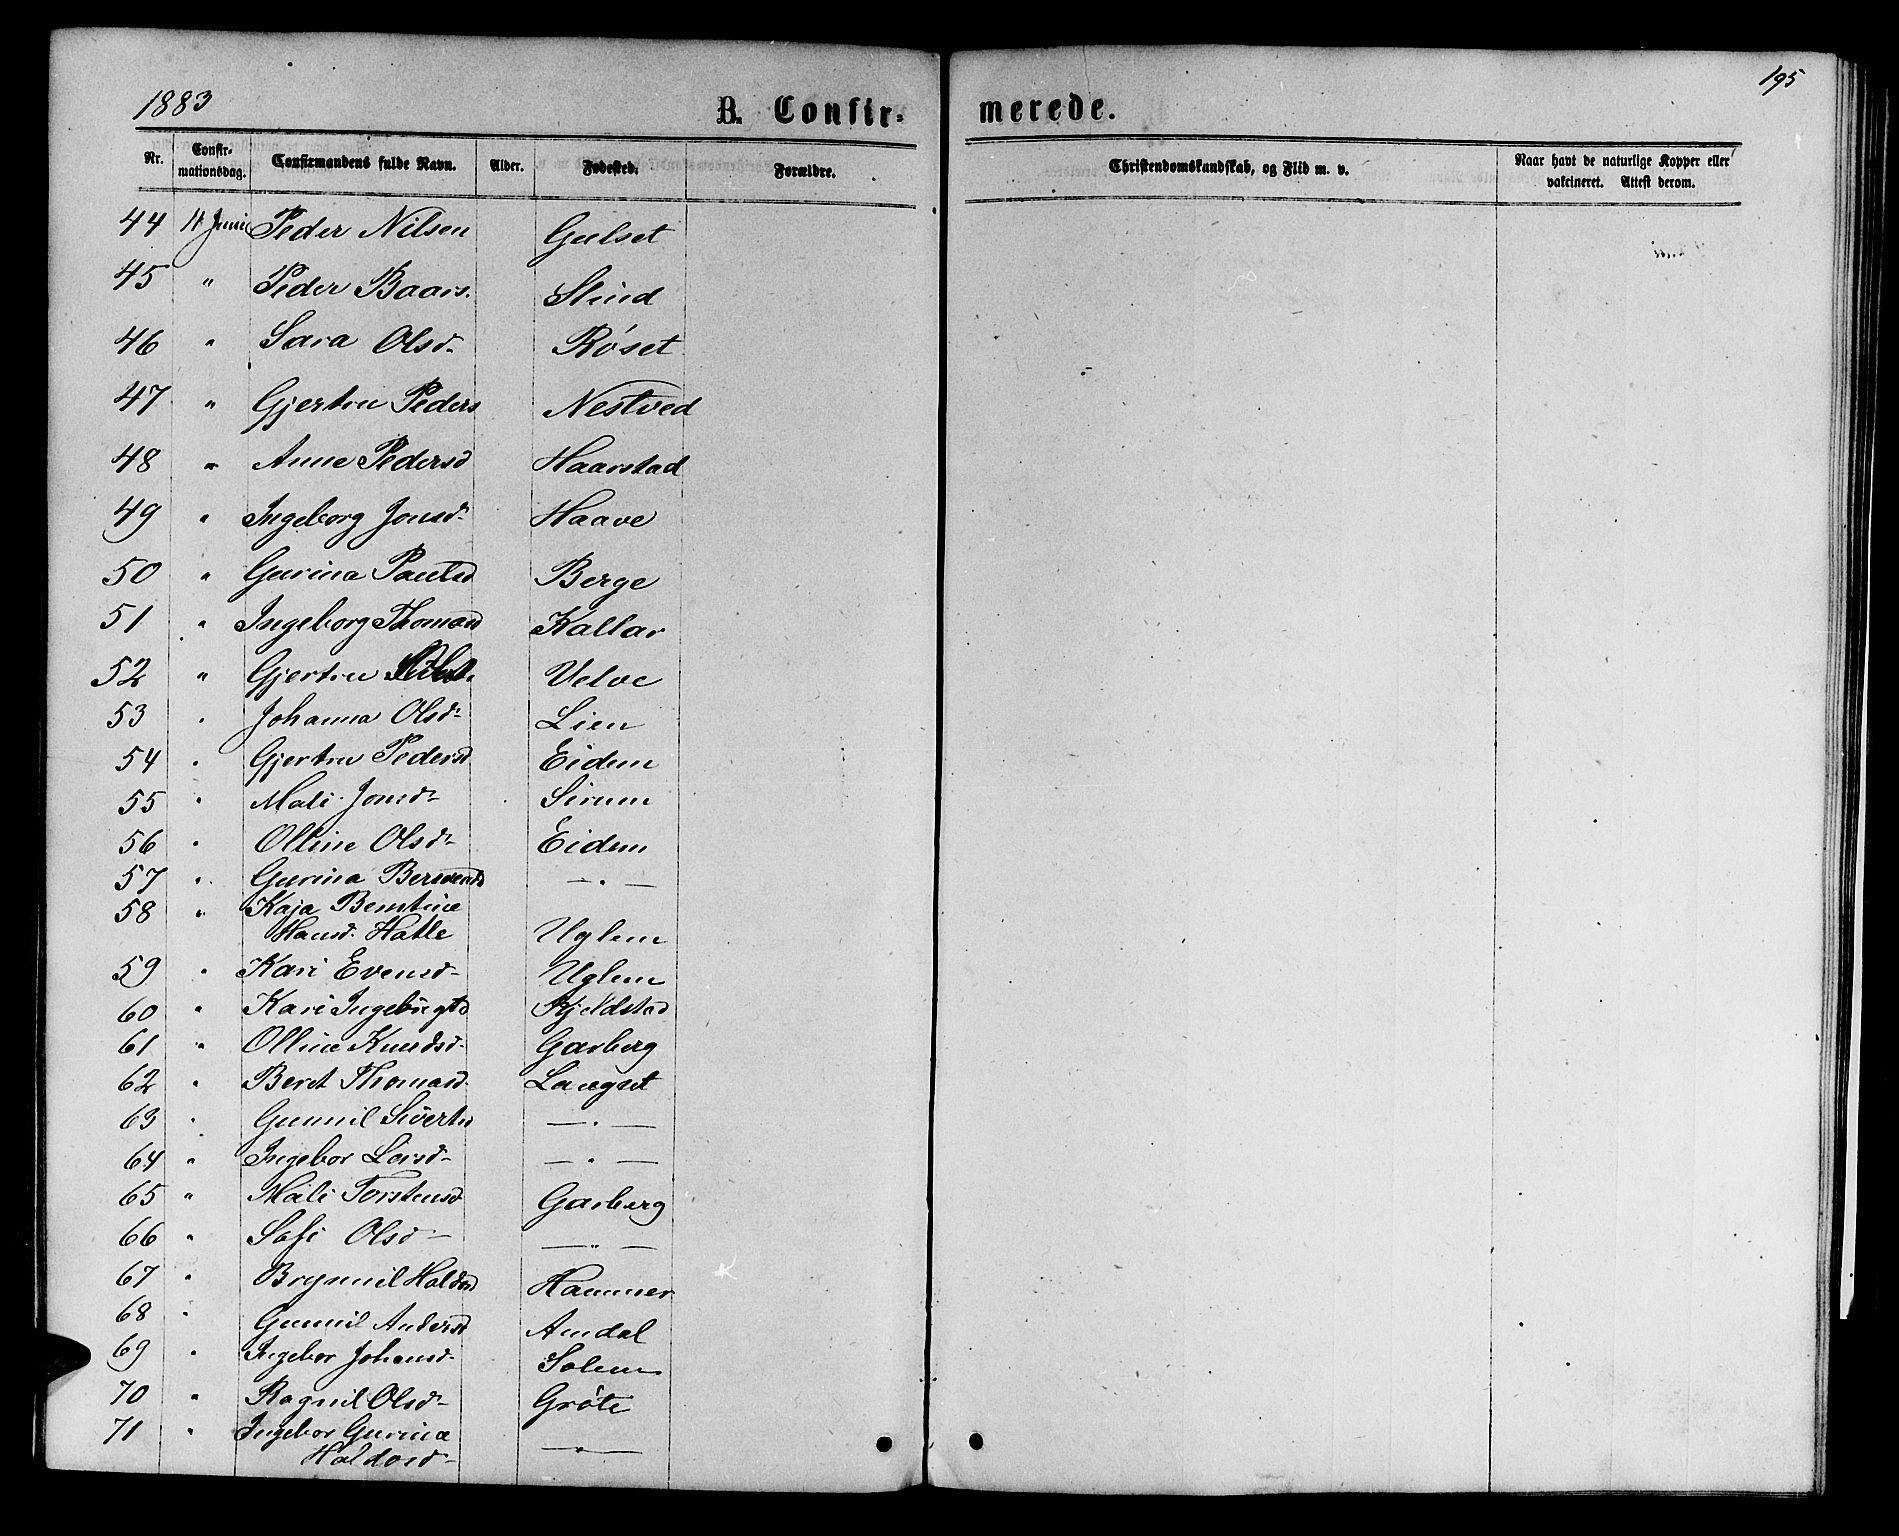 195
1883
B. Confir-
merede.
Nr. Confir-mationsdag. Confirmandens fulde Navn. Alder. Fødested. Forældre. Christendomskundskab, og Flid m. v. Naar havt de naturlige Kopper eller vakcineret. Attest derom.
44 11 Juni Peder Nilsen Gulset
45 " Peder Baars. Slind
46 " Sara Olsd. Røset
47 " Gjertru Peders Nestved
48 " Anne Pedersd Haarstad
49 " Ingeborg Jonsd. Haave
50 " Gurina Paulsd Berge
51 " Ingeborg Thomasd Kallar
52 " Gjertru Velve
53 " Johanna Olsd. Lien
54 " Gjertru Pedersd Eidem
55 " Mali Jonsd. Sirum
56 " Olline Olsd. Eidem
57 " Gurina Bersvends — " —
58 " Kaja Berntine
Hansd. Hatle Uglem
59 " Kari Evensd. Uglem
60 " Kari Ingebrigtd Kjeldstad
61 " Olline Knudsd. Garberg
62 " Beret Thomasd. Langset
63 " Gunnil Sivertsd — " —
64 " Ingebor Larsd. — " —
65 " Mali Torstensd Garberg
66 " Safi Olsd. — " —
67 " Brynnil Haldosd Hammer
68 " Gunnil Andersd Amdal
69 " Ingebor Johansd. Solem
70 " Ragnil Olsd. Grøte
71 " Ingebor Gurina
Haldosd. — " —